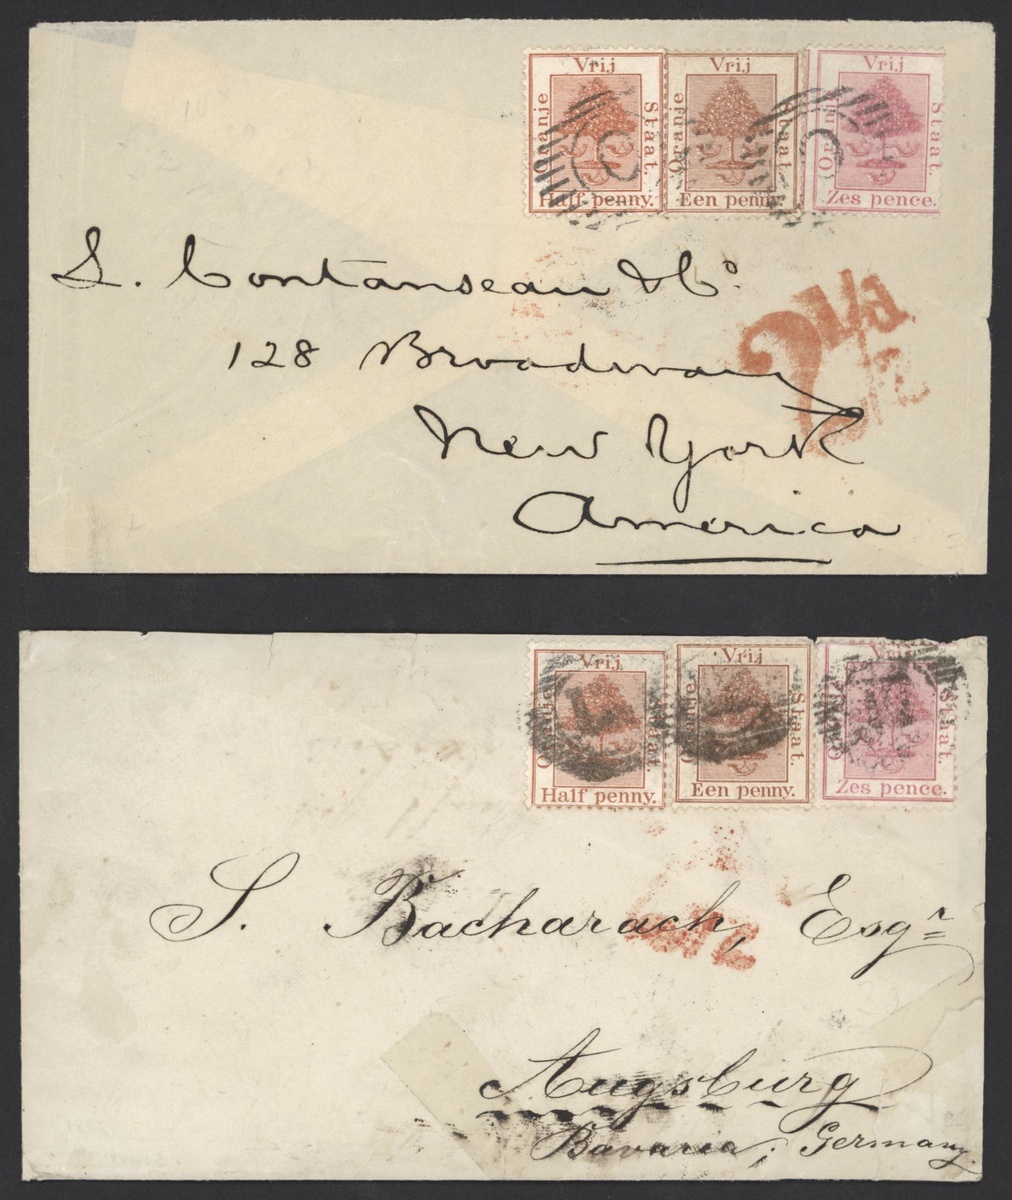 Vrij Oranje Staat. Half penny.
Vrij Oranje Staat. Een penny.
Vrij Staat. Zes pence.
S. Contanseau & Co
128 Broadway
New York
America
Vrij Oranje Staat. Half penny.
Vrij Oranje Staat. Een penny.
Vrij Staat. Zes pence.
S. Bacharach, Esqr
Augsburg
Bavaria, Germany.